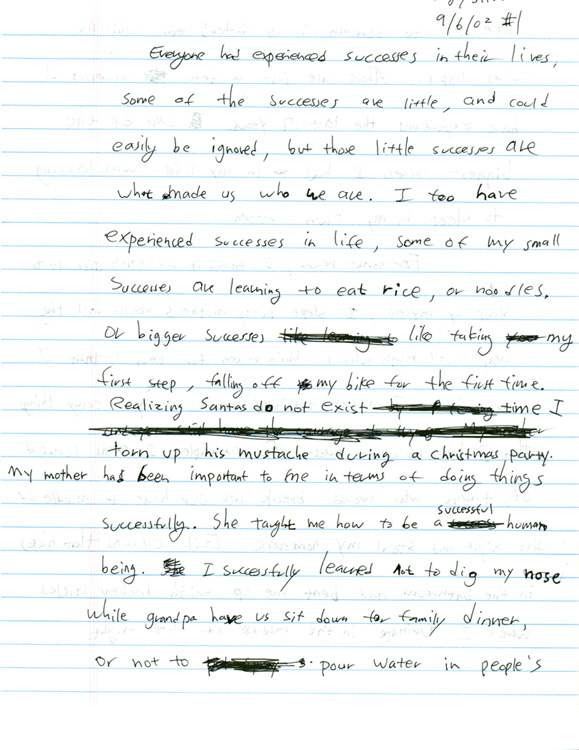 9/6/02 #1
Everyone has experienced successes in their lives,
some of the successes are little, and could
easily be ignored, but those little successes are
what made us who we are. I too have
experienced successes in life, some of my small
Successes are learning to eat rice, or noodles.
Or bigger success like taking my
first step, falling off my bike for the first time.
Realizing Santas do not exist time I
torn up his mustache during a christmas party.
My mother has been important to me in terms of doing things
successfully. She taught me how to be a successful human
being. I successfully learned not to dig my nose
while grandpa have us sit down for family dinner,
or not to pour water in people's